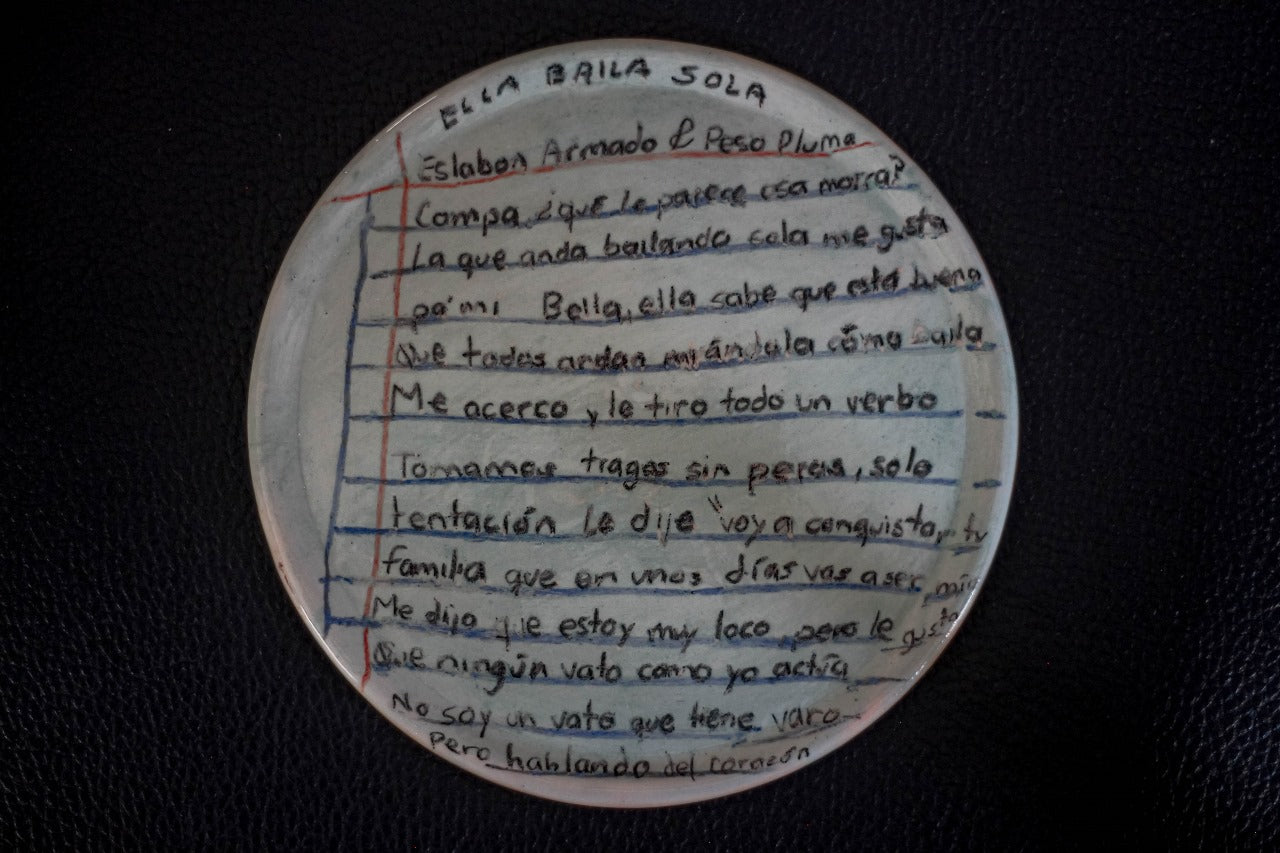 ELLA BAILA SOLA
Eslabon Armado & Peso Pluma
Compa ¿que le parece esa morra?
La que anda bailando sola me gusta
pa'mi Bella, ella sabe que esta buena
Que todos andan mirándola cómo baila
Me acerco y le tiro todo un verbo
Tomamos tragos sin peros, solo
tentación Le dije "voy a conquistar tu
familia que en unos días vas a ser mía
Me dijo que estoy muy loco pero le gusta
Que ningún vato como yo actúa
No soy un vato que tiene varo
pero hablando del corazón